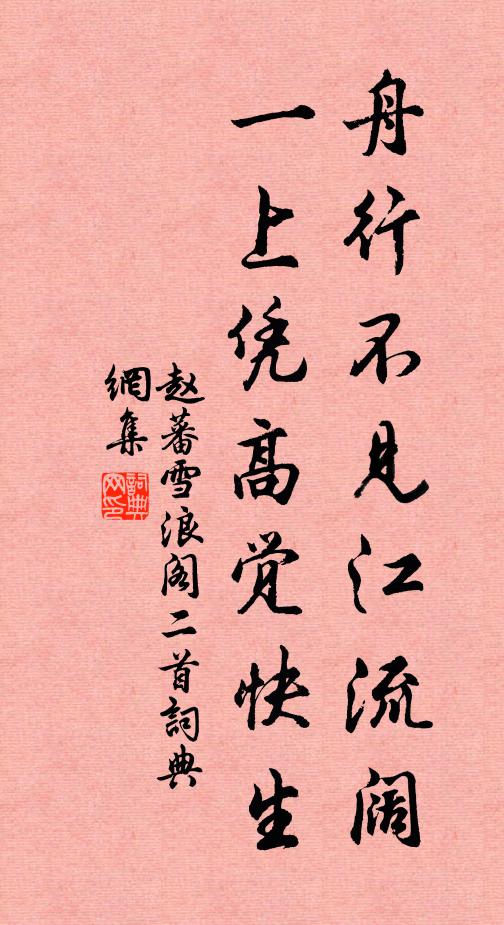 舟行不见江流阔
一上凭高觉快生
赵蕃雪浪阁二首詞典
網集
詞典
网印